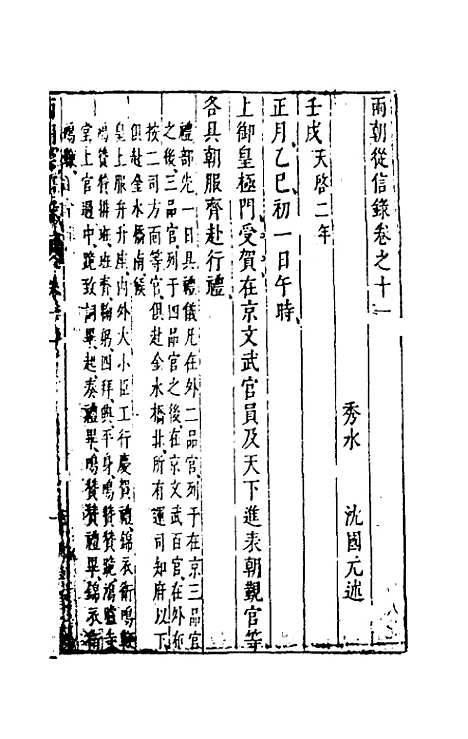 兩朝從信錄卷之十一
秀水 沈國元述
壬戌天啓二年
正月乙巳初一日午時
上御皇極門受賀在京文武官員及天下進表朝覲官等
各具朝服齊赴行禮
禮部先一日具禮儀凡在外二品官列于在京三品官
之後三品官列于四品官之後在京文武百官在外布
按二司方面等官俱赴金水橋北所有運司知府以下
俱赴金水橋南候
皇上服弁升座內外大小臣工行慶賀禮錦衣衛鳴鞭
鳴贊贊排班班齊鞠躬四拜興平身鳴贊贊跪鴻臚寺
堂上官過中跪致詞畢起奏禮畢鳴贊贊禮畢錦衣衛
鳴鞭